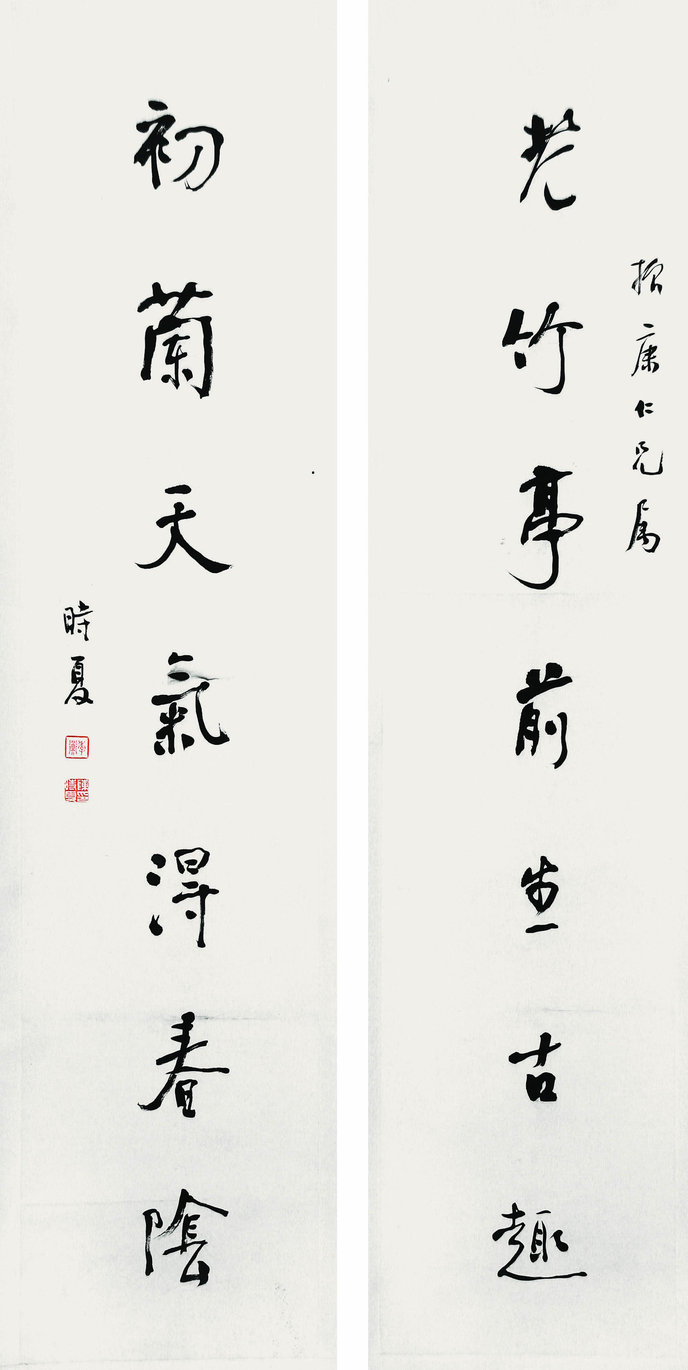 康仁兄属
老竹亭前生古趣
初蘭天氣得春陰
時夏